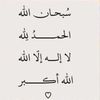 سُبحان الله
الحمــدُ لله
لا إلــه إلّا الله
الله أكـــبر